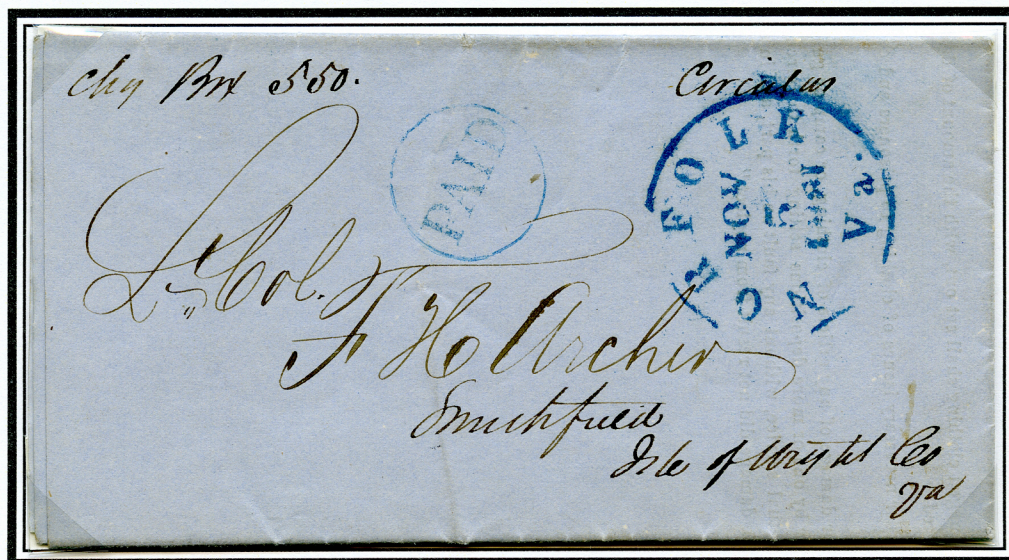 chg Box 550.
Circular
PAID
NORFOLK Va.
NOV
5
1861
Lt Col.
F H Archer
Smithfield
Isle of Wight Co
Va